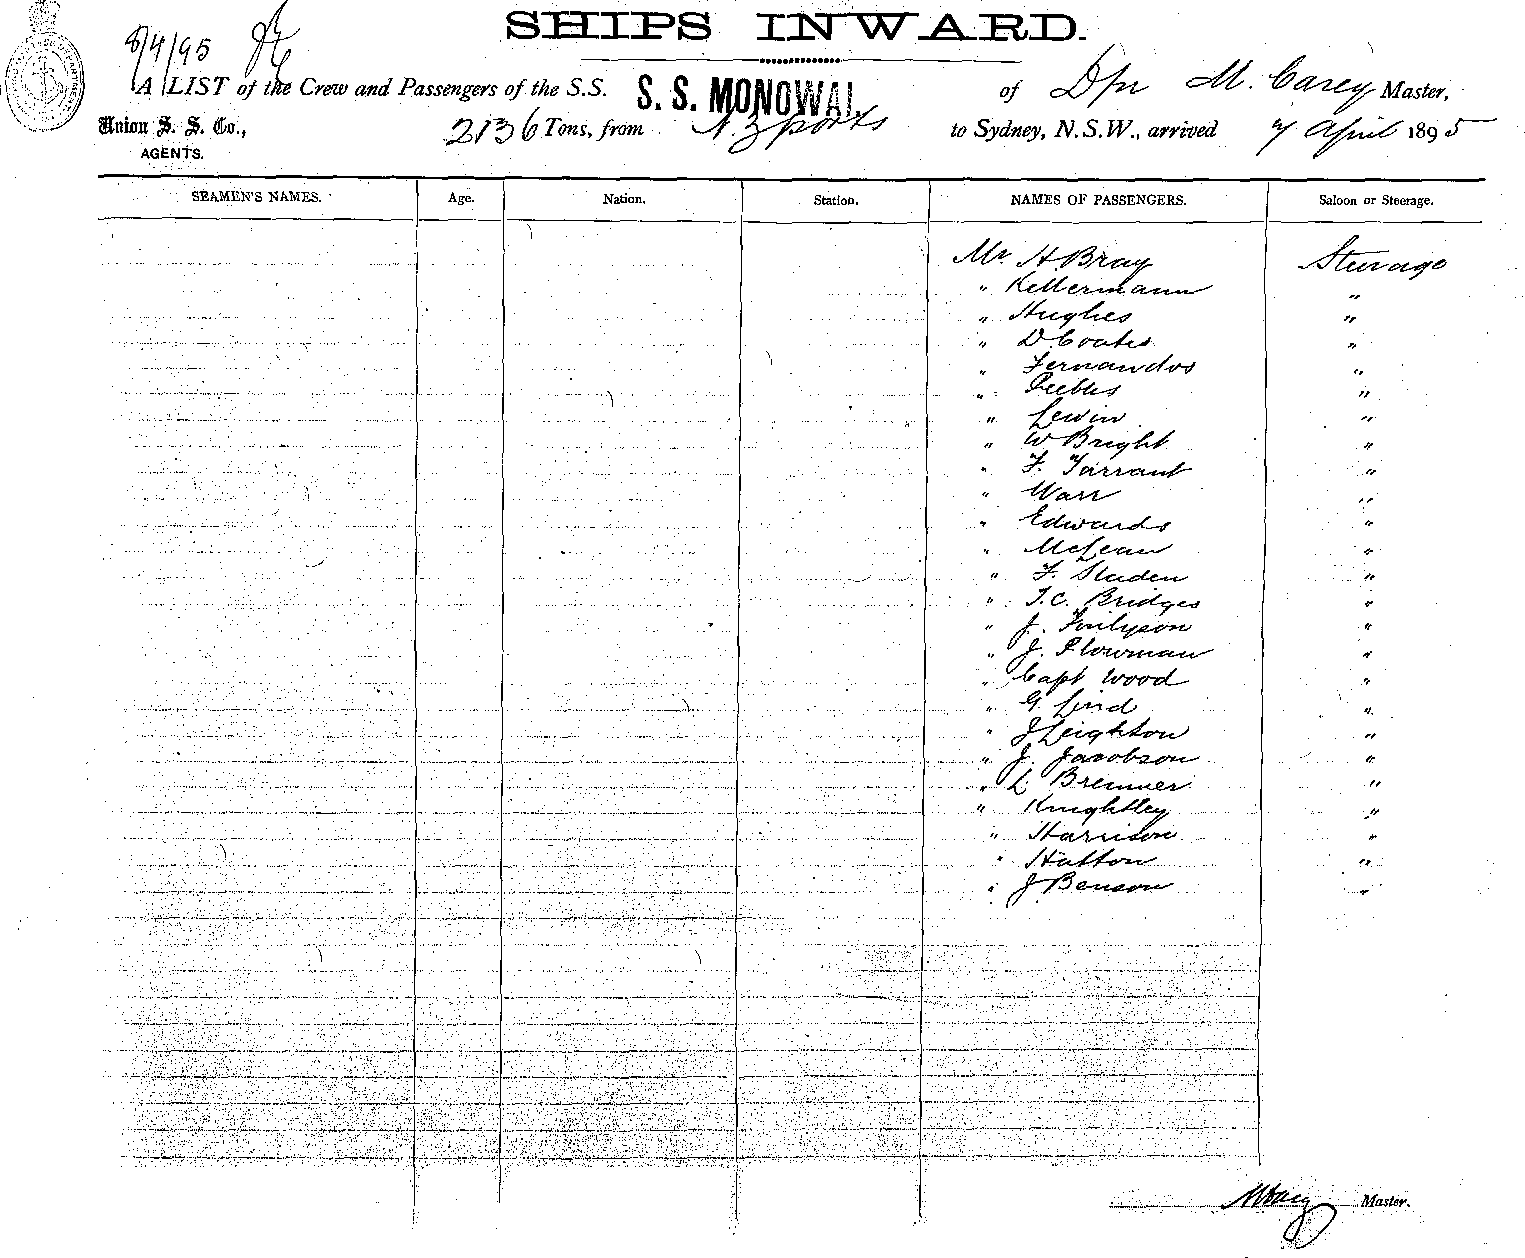 SHIPS INWARD.
8/4/95
A LIST of the Crew and Passengers of the S.S. S. S. MONOWAI of Dpn M. Carey Master,
Union S. S. Co., 2136 Tons, from N. Z ports to Sydney, N.S.W., arrived 7 April 1895
AGENTS.
SEAMEN'S NAMES. Age. Nation. Station. NAMES OF PASSENGERS. Saloon or Steerage.
Mr H. Bray Steerage
" Kellermann "
" Hughes "
" D. Coates "
" Fernandos "
" Peebles "
" Lewin "
" W Bright "
" F. Tarrant "
" Warr "
" Edwards "
" McLean "
" F. Sladen "
" T.C. Bridges "
" J. Finlyson "
" J. Plowman "
" Capt Wood "
" G. Lind "
" J Leighton "
" J. Jacobson "
" L. Bremner "
" Knightley "
" Harrison "
" Hatton "
" J Benson "
M Carey Master.